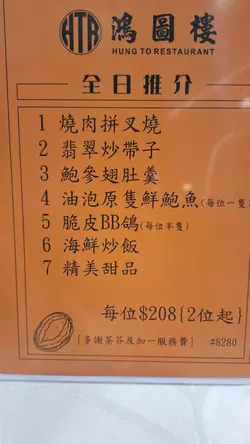 HTR 鴻圖樓
HUNG TO RESTAURANT
全日推介
1 燒肉拼叉燒
2 翡翠炒帶子
3 鮑參翅肚羹
4 油泡原隻鮮鮑魚(每位一隻)
5 脆皮BB鴿(每位半隻)
6 海鮮炒飯
7 精美甜品
每位$208{2位起}
[多謝茶芥及加一服務費] #8280